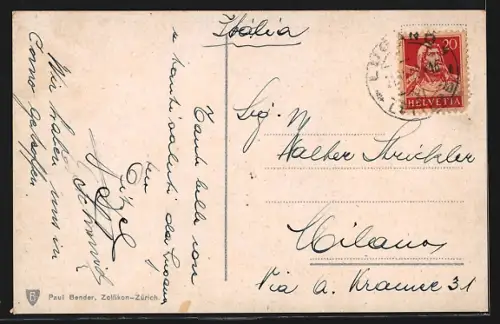 Italia
20
HELVETIA
LUGANO
Sig.
Walter Strickler
Milano
Via a. Kramer 31
Tante belle von
e tanti saluti da Lugano
Wir haben uns in
Como getroffen.
Paul Bender, Zollikon-Zürich.